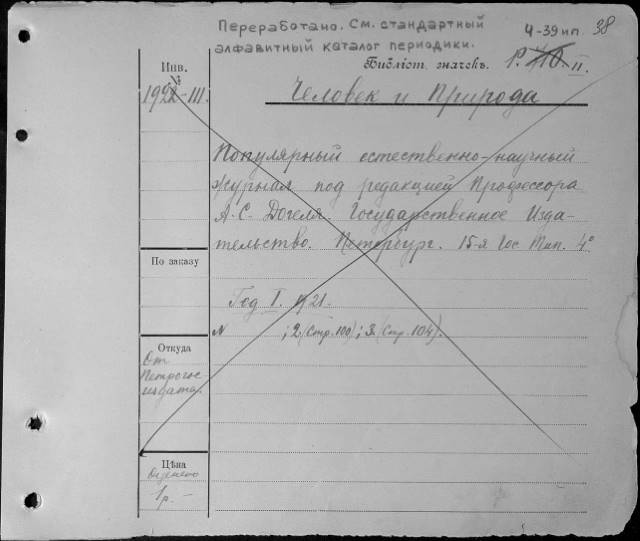 Переработано. См. стандартный
алфавитный каталог периодики.
Ч-39 ип. 38
Бібліот. значекъ. Р. 710. II.
Инв.
№
1922-III.
Человек и Природа
Популярный естественно-научный
журнал под редакцией Профессора
А. С. Догеля. Государственное Изда-
тельство. Петербург. 15-я Гос. Тип. 4°
По заказу
Год I. 1921.
N ; 2 (Стр. 100); 3 (Стр. 104).
Откуда
От
Петрогос-
издата.
Цѣна
Оценено
1 р. -